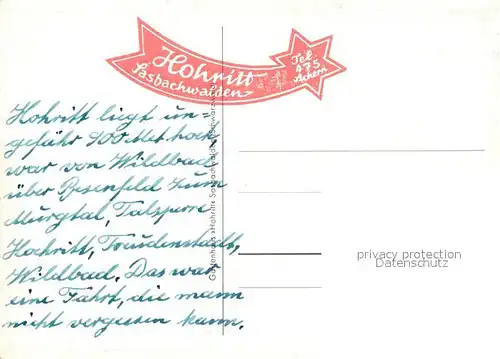 Hohritt
Sasbachwalden
Tel.
475
Achern
Hohritt liegt un=
gefähr 900 Met. hoch,
war von Wildbad
über Besenfeld zum
Murgtal, Talsperre
Hochritt, Freudenstadt,
Wildbad. Das war
eine Fahrt, die mann
nicht vergessen kann.
Hohritt Sasbachwalden
privacy protection
Datenschutz